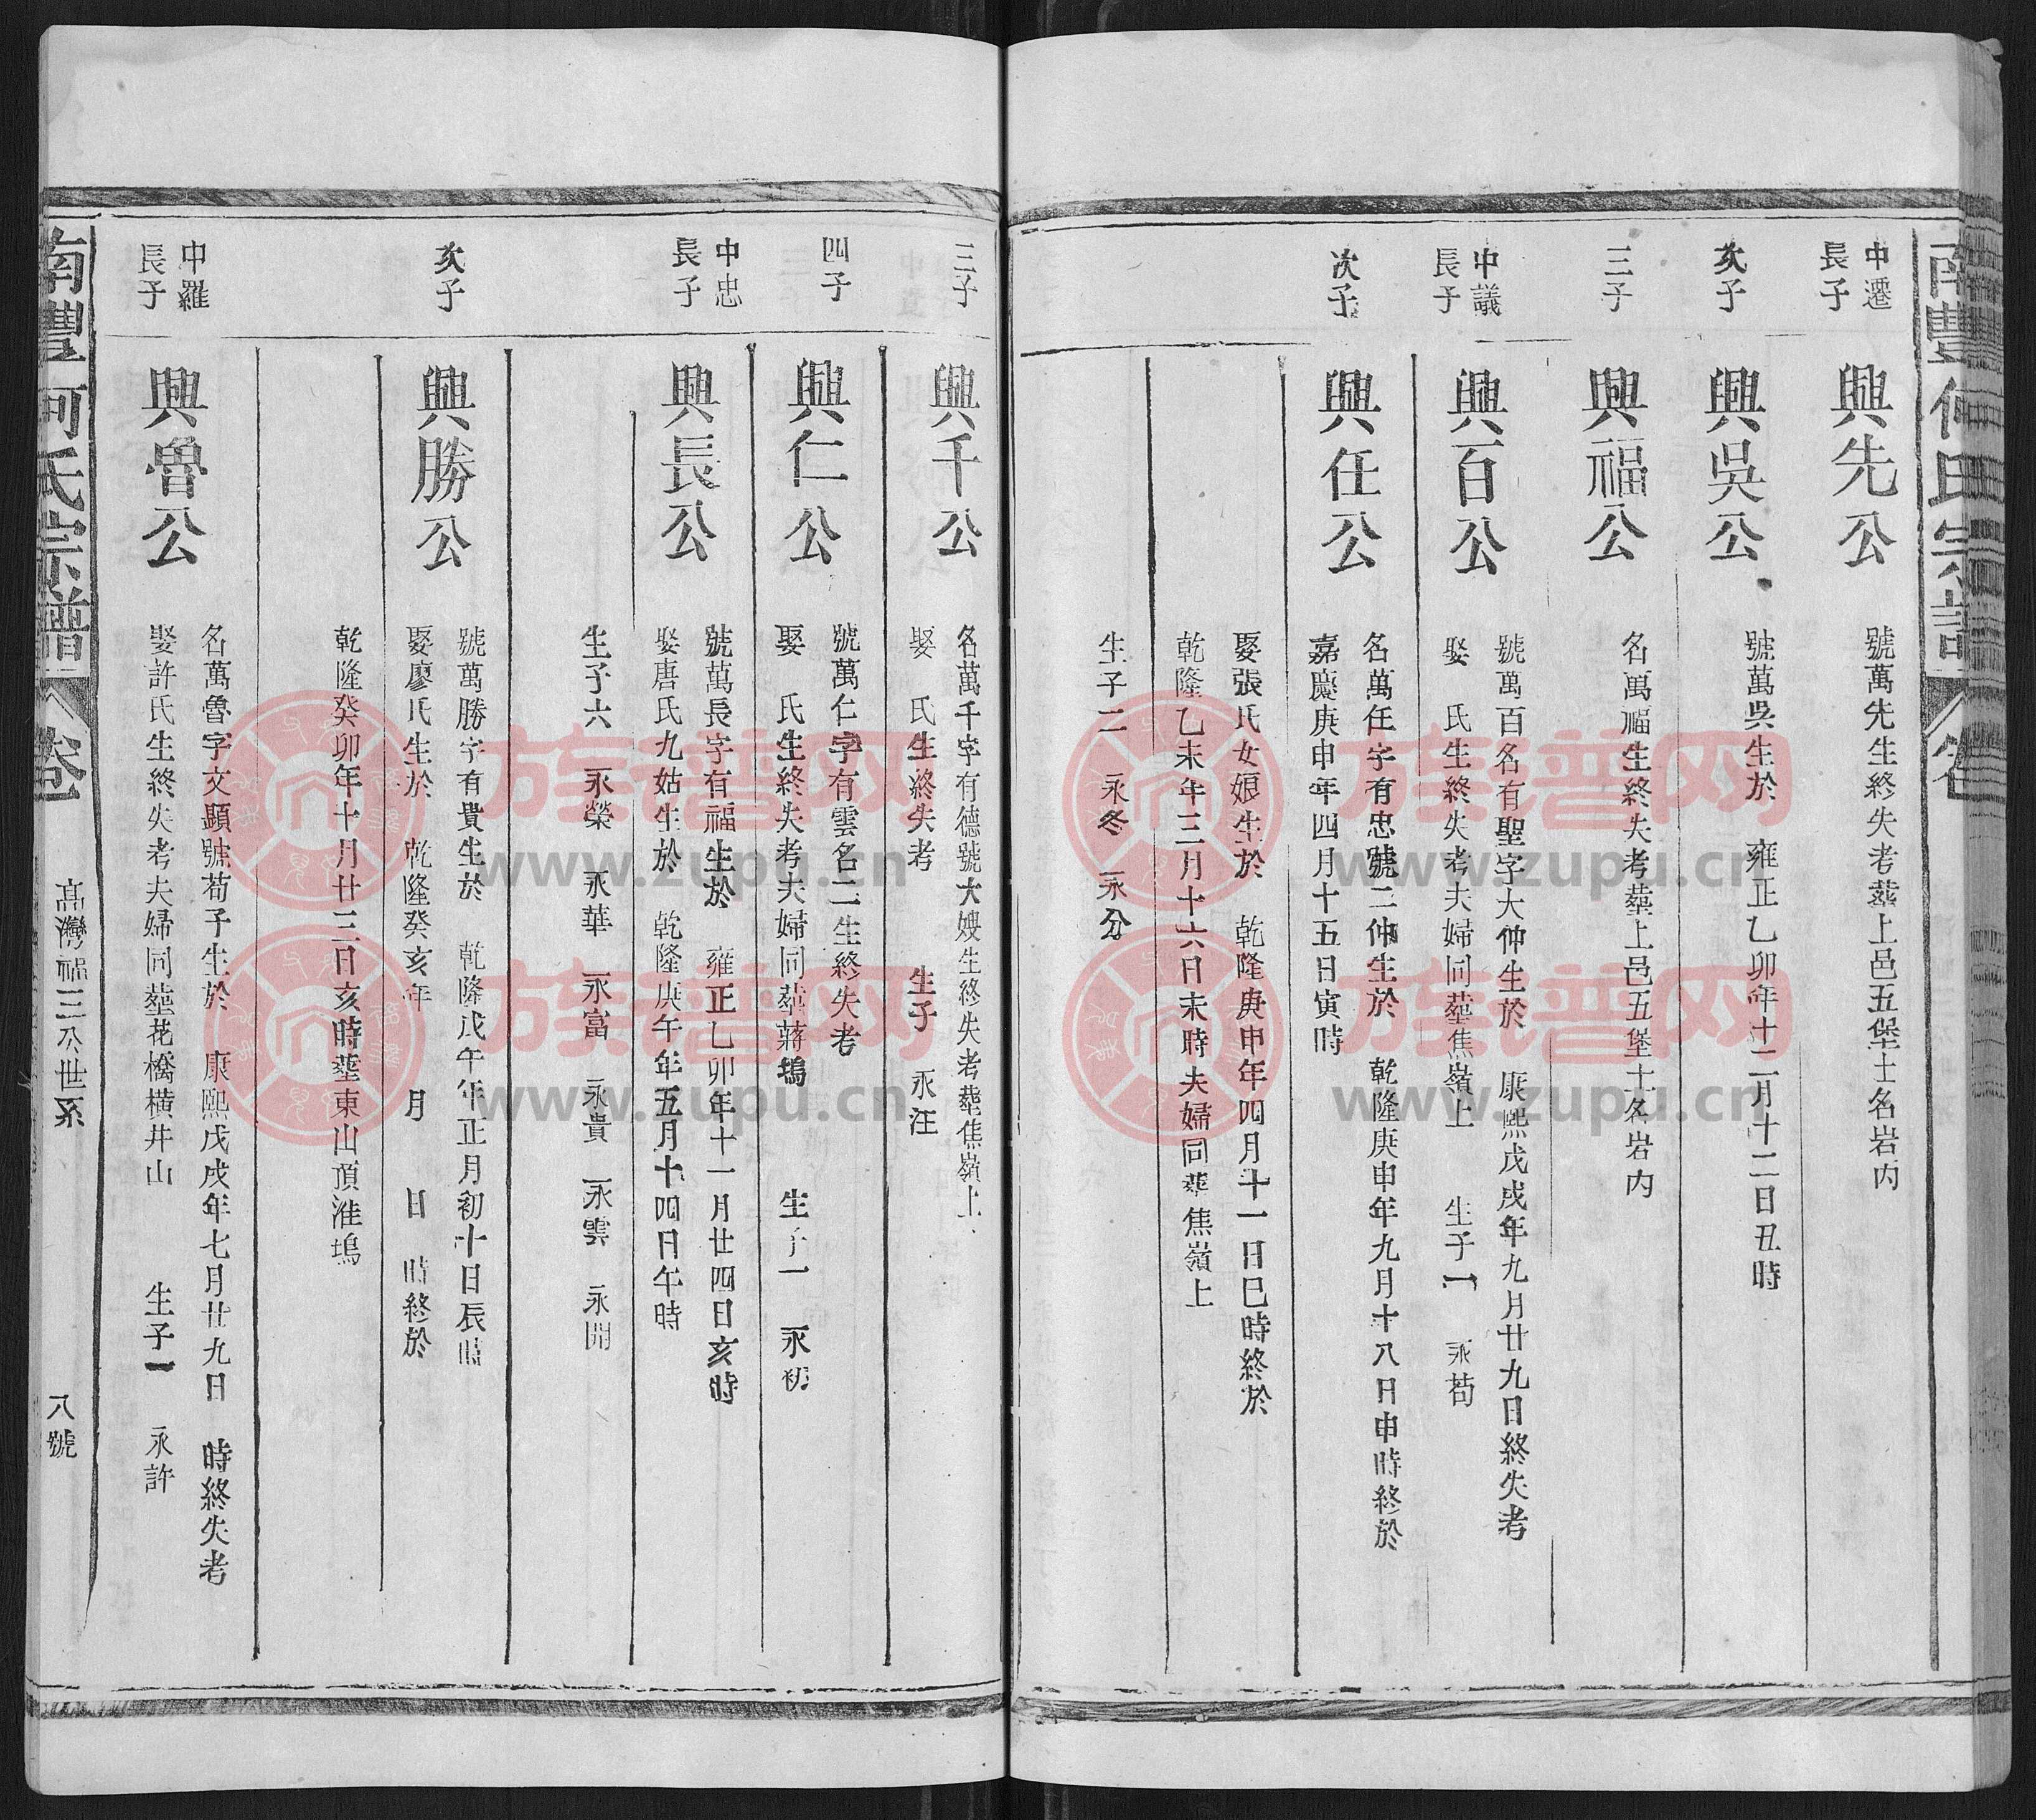 中遷長子
興先公
號萬先生終失考塟上邑五堡土名岩内
次子
興吳公
號萬吳生於 雍正乙卯年十二月十二日丑時
三子
興福公
名萬福生終失考塟上邑五堡土名岩内
中議長子
興百公
號萬百名有聖字大仲生於 康熙戊戌年九月廿九日終失考
娶 氏生終失考夫婦同塟焦嶺上 生子一 永荀
次子
興任公
名萬任字有忠號二仲生於 乾隆庚申年九月十八日申時終於
嘉慶庚申年四月十五日寅時
娶張氏女娘生於 乾隆庚申年四月十一日巳時終於
乾隆乙未年三月十六日未時夫婦同塟焦嶺上
生子二 永冬 永分
三子
興千公
名萬千字有德號大嫂生終失考塟焦嶺上
娶 氏生終失考 生子 永汪
四子
興仁公
號萬仁字有雲名二生終失考
娶 氏生終失考夫婦同塟蔣塢 生子一 永初
中忠長子
興長公
號萬長字有福生於 雍正乙卯年十一月廿四日亥時
娶唐氏九姑生於 乾隆庚午年五月十四日午時
生子六 永榮 永華 永富 永貴 永雲 永開
次子
興勝公
號萬勝字有貴生於 乾隆戊午年正月初十日辰時
娶廖氏生於 乾隆癸亥年 月 日 時終於
乾隆癸卯年十月廿三日亥時塟東山頂淮塢
中羅長子
興魯公
名萬魯字文顯號荀子生於 康熙戊戌年七月廿九日 時終失考
娶許氏生終失考夫婦同塟花橋橫井山 生子一 永許
南豐何氏宗譜 卷一 高灣福三公世系 八號
族谱网
www.zupu.cn
族谱网
www.zupu.cn
族谱网
www.zupu.cn
族谱网
www.zupu.cn